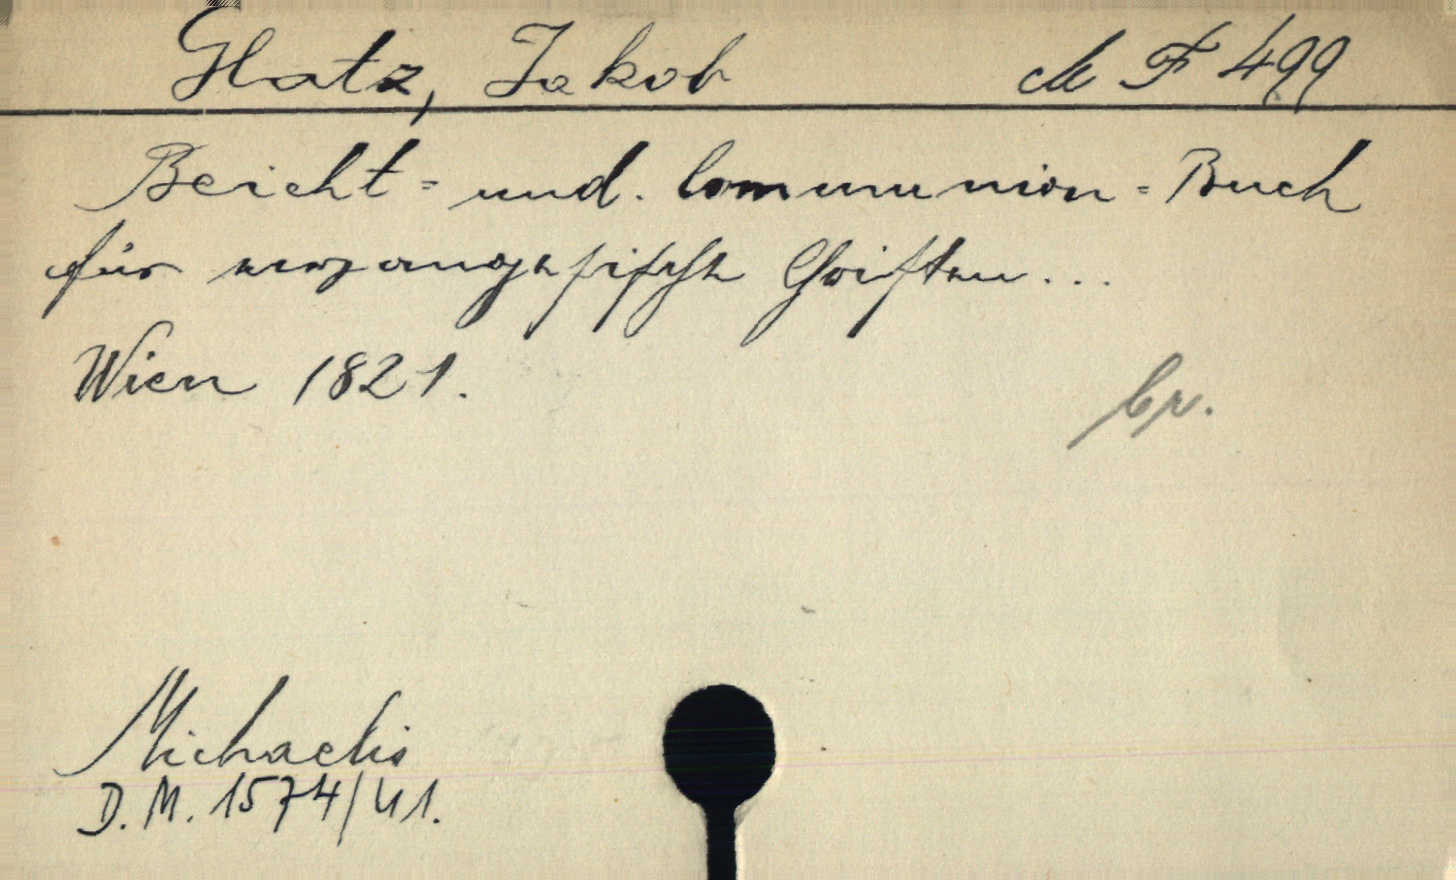 Glatz, Jakob
F 499
Beicht- und. Communion-Buch
für evangelische Christen...
Wien 1821.
br.
Michaelis
D. M. 1574/41.